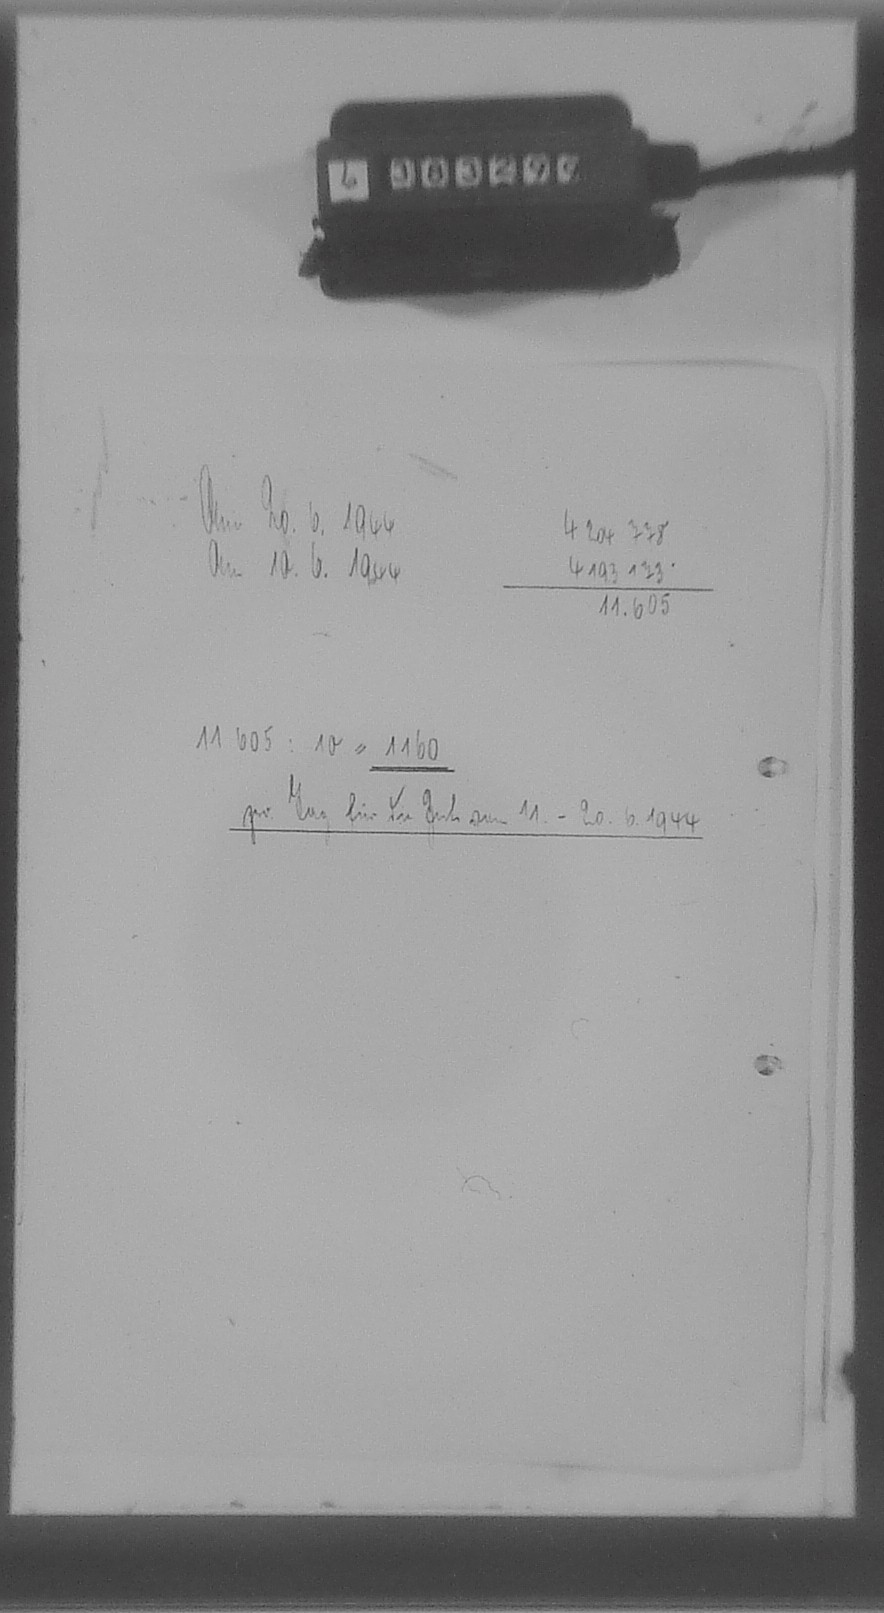 6
Am 20. 6. 1944 4 204 778
Am 10. 6. 1944 4 193 173.
11.605
11 605 : 10 = 1160
pro Tag für die Zeit vom 11. - 20. 6. 1944